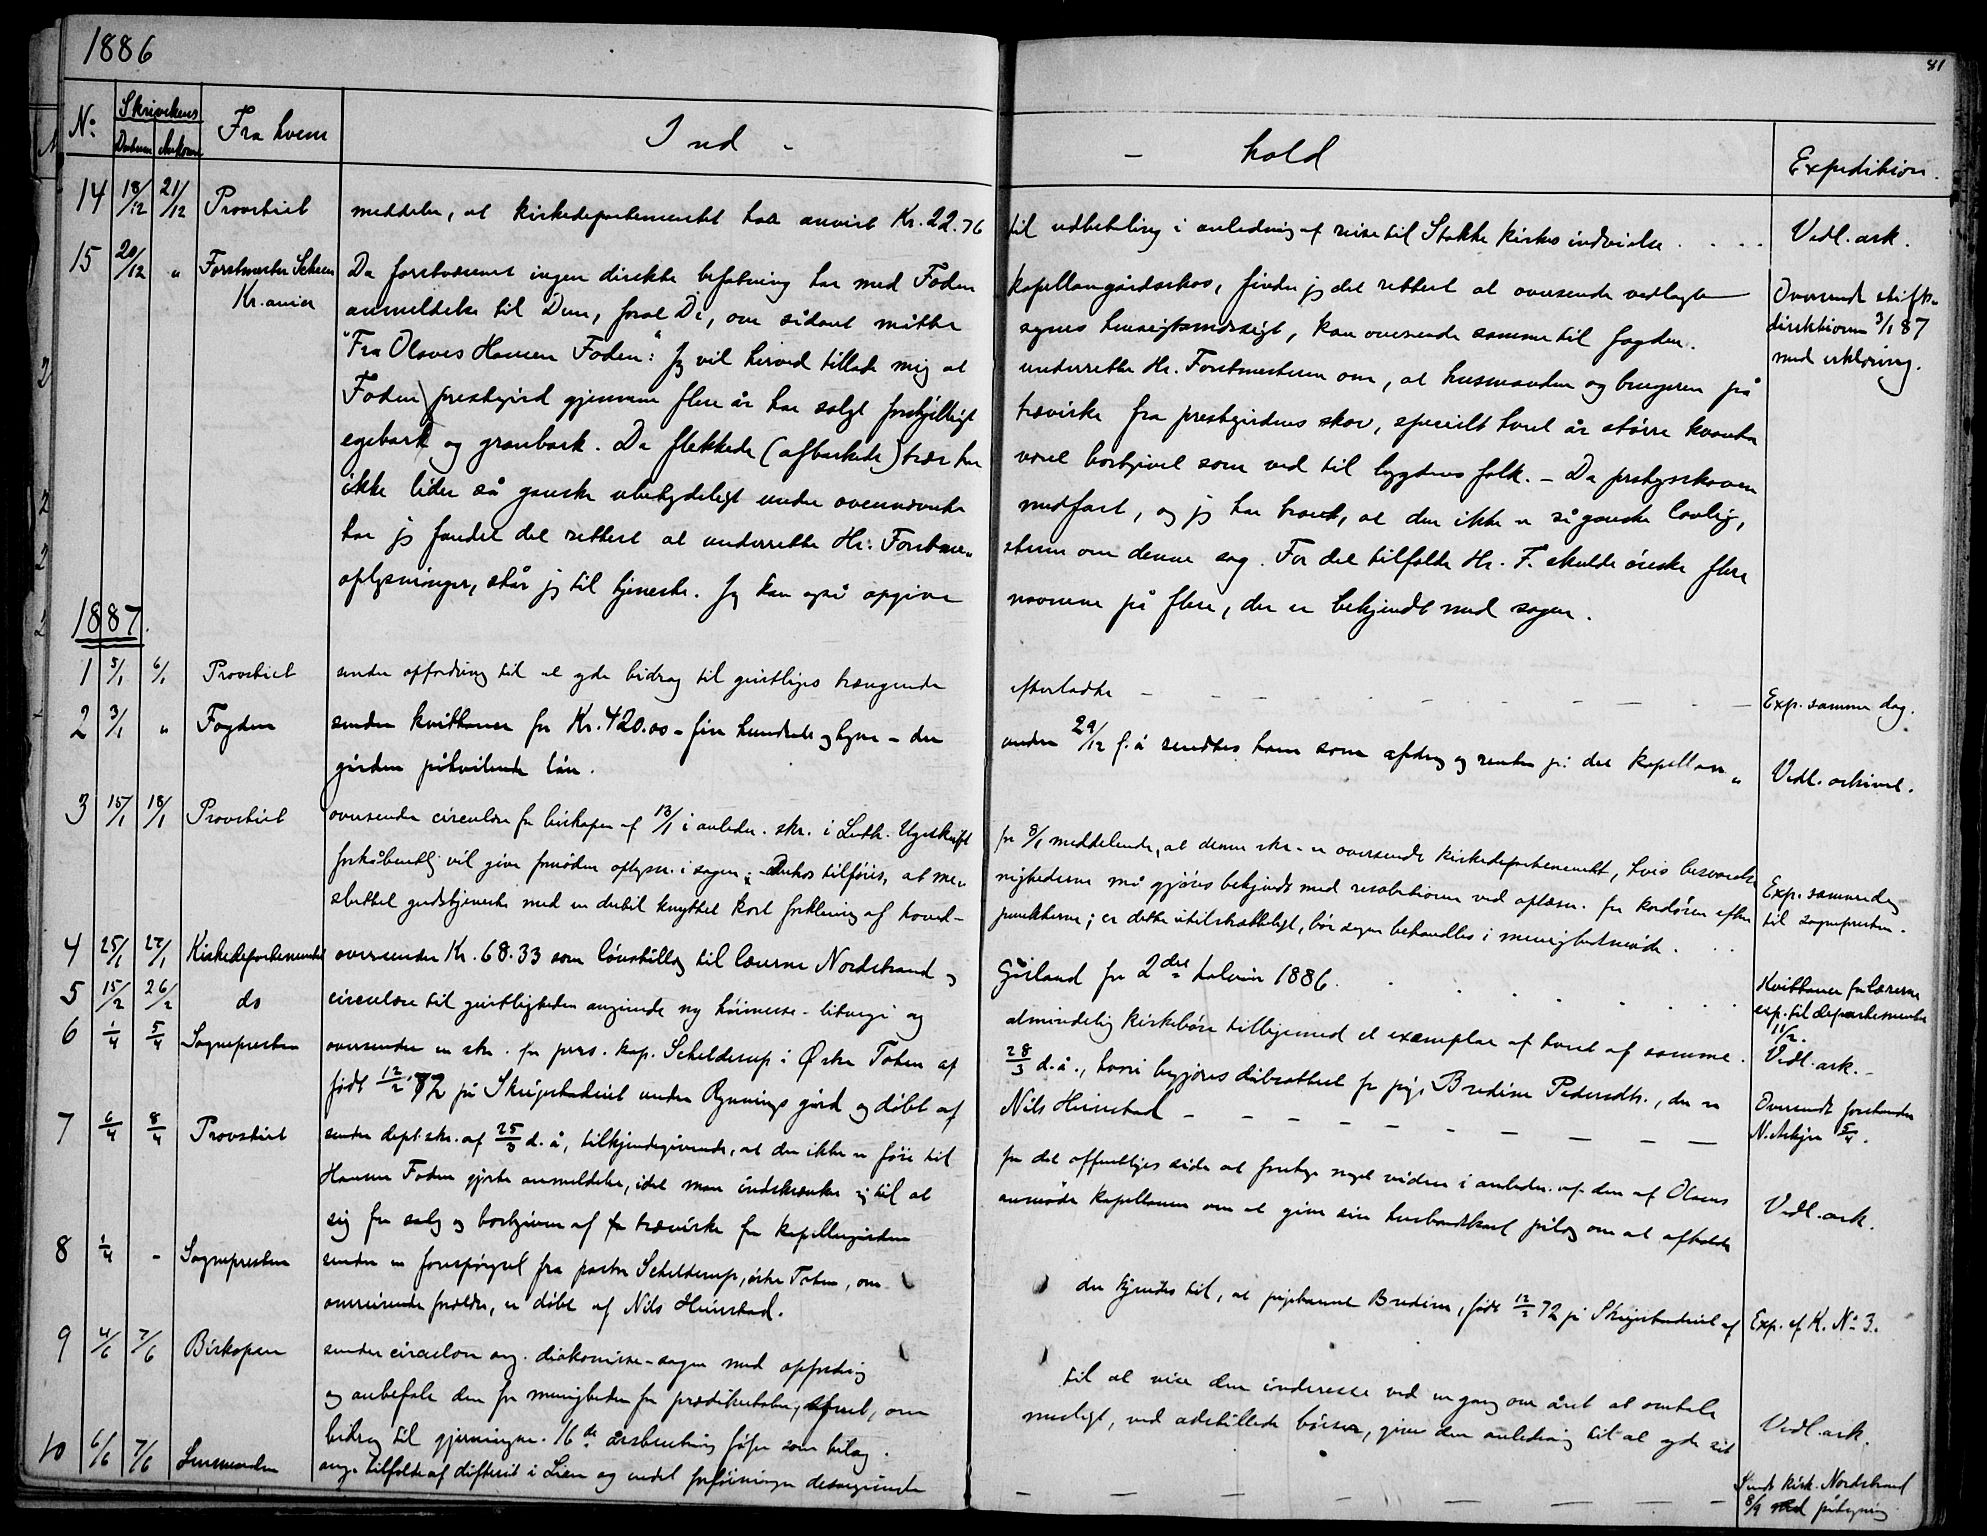 1886
81
No Skrivelsens Fra hvem Ind - - hold Expedition.
Datum Ankomst
14 18/12 21/12 Provstiet meddeler, at kirkedepartementet har anvist Kr. 22.76 til udbetaling i anledning af reise til Stokke kirkes indvielse . . . . Vedl. ark.
15 20/12 " Forstmester Scheen Da forstvæsenet ingen direkte befatning har med Foden kapellangårdsskov, finder jeg det rettest at oversende vedlagte Oversendt stifts-
Kr.ania anmeldelse til Dem, forat De, om sådant måtte synes hensigtsmæssigt, kan oversende samme til fogden. direktionen 3/1 87
"Fra Olaves Hansen Foden:" Jeg vil herved tillade mig at underrette Hr. Forstmesteren om, at husmanden og brugeren på med erklæring.
Foden prestegård gjennem flere år har solgt forskjelligt trævirke fra prestegårdens skov, specielt hvert år større kvanta
egebark og granbark. Da flekkede (afbarkede) trær har været bortgivet som ved til bygdens folk. - Da prestegskoven
ikke lider så ganske ubetydeligt under ovennævnte medfart, og jeg har troet, at den ikke er så ganske lovlig,
har jeg fundet det rettest at underrette Hr. Forstme- steren om denne sag. For det tilfælde Hr. F. skulde ønske flere
oplysninger, står jeg til tjeneste. Jeg kan også opgive navnene på flere, der er bekjendt med sagen.
1887.
1 5/1 6/1 Provstiet sender opfordring til at yde bidrag til geistliges trængende efterladte - - - - - - Exp. samme dag.
2 3/1 " Fogden sender kvittance for Kr. 420.00 - fire hundrede og tyve - der under 29/12 f.å sendtes ham som afdrag og renter på det kapellan- Vedl. arkivet.
gården påhvilende lån.
3 15/1 18/1 Provstiet oversender circulære fra biskopen af 13/1 i anledn. skr. i Luth. Ugeskrift fra 8/1 meddelende, at denne skr. er oversendt kirkedepartementet, hvis besvarelse
forhåbentlig vil give fornøden oplysn. i sagen; Derhos tilføies, at me- nighederne må gjøres bekjendt med resolutionen ved oplæsn. fra kordøren efter Exp. sammedag
sluttet gudstjeneste med en dertil knyttet kort forklaring af hoved- punkterne; er dette utilstrækkeligt, bør sagen behandles i menighedsmøde. . . til sognepresten.
4 25/1 27/1 Kirkedepartementet oversender Kr. 68.33 som lønstillæg til lærerne Nordstrand og Gåsland for 2det halvår 1886. . . . . . Kvittancer fra lærerne
exp. til departementet 11/2.
5 15/2 26/2 do circulære til geistligheden angående ny høimesse-liturgi og almindelig kirkebøn tilligemed et exemplar af hvert af samme. Vedl. ark. -
6 1/4 5/4 Sognepresten oversender en skr. fra pers. kap. Schelderup i Østre Toten af 28/3 d.å., hvori begjæres dåbsattest for pige Bredine Pedersdtr., der er Oversendt forstander
født 12/2 72 på Skrigestadeiet under Rynnings gård og døbt af Nils Heierstad - - - - - - - N. Askjer 5/4.
7 6/4 8/4 Provstiet sender dept. skr. af 25/3 d.å, tilkjendegivende, at der ikke er føie til fra det offentliges side at foretage noget videre i anledn. af den af Olaves
Hansen Foden gjorte anmeldelse, idet man indskrænker sig til at anmode kapellanen om at give sin husbandskarl pålæg om at afholde Vedl. ark.
sig fra salg og bortgiven af trævirke fra kapellangården
8 1/4 - Sognepresten sender en forespørgsel fra pastor Schelderup, østre Toten, om der kjendes til, at pigebarnet Bredine, født 12/2 72 på Skrigestadeiet af Exp. cf K. No 3.
omreisende forældre, er døbt af Nils Heierstad.
9 4/6 7/6 Biskopen sender circulære ang. diakonisse-sagen med opfordring til at vise den interesse ved en gang om året at omtale
og anbefale den for menigheden fra prædikestolen, samt, om muligt, ved udstillede bøsser, give den anledning til at yde sit Vedl. ark.
bidrag til gjerningen. 16de årsberetning følger som bilag.
10 6/6 7/6 Lensmanden ang. tilfælde af difterit i Lien og endel forføininger desangående - - - - - - Sendt kirk. Nordstrand
8/9 med påtegning